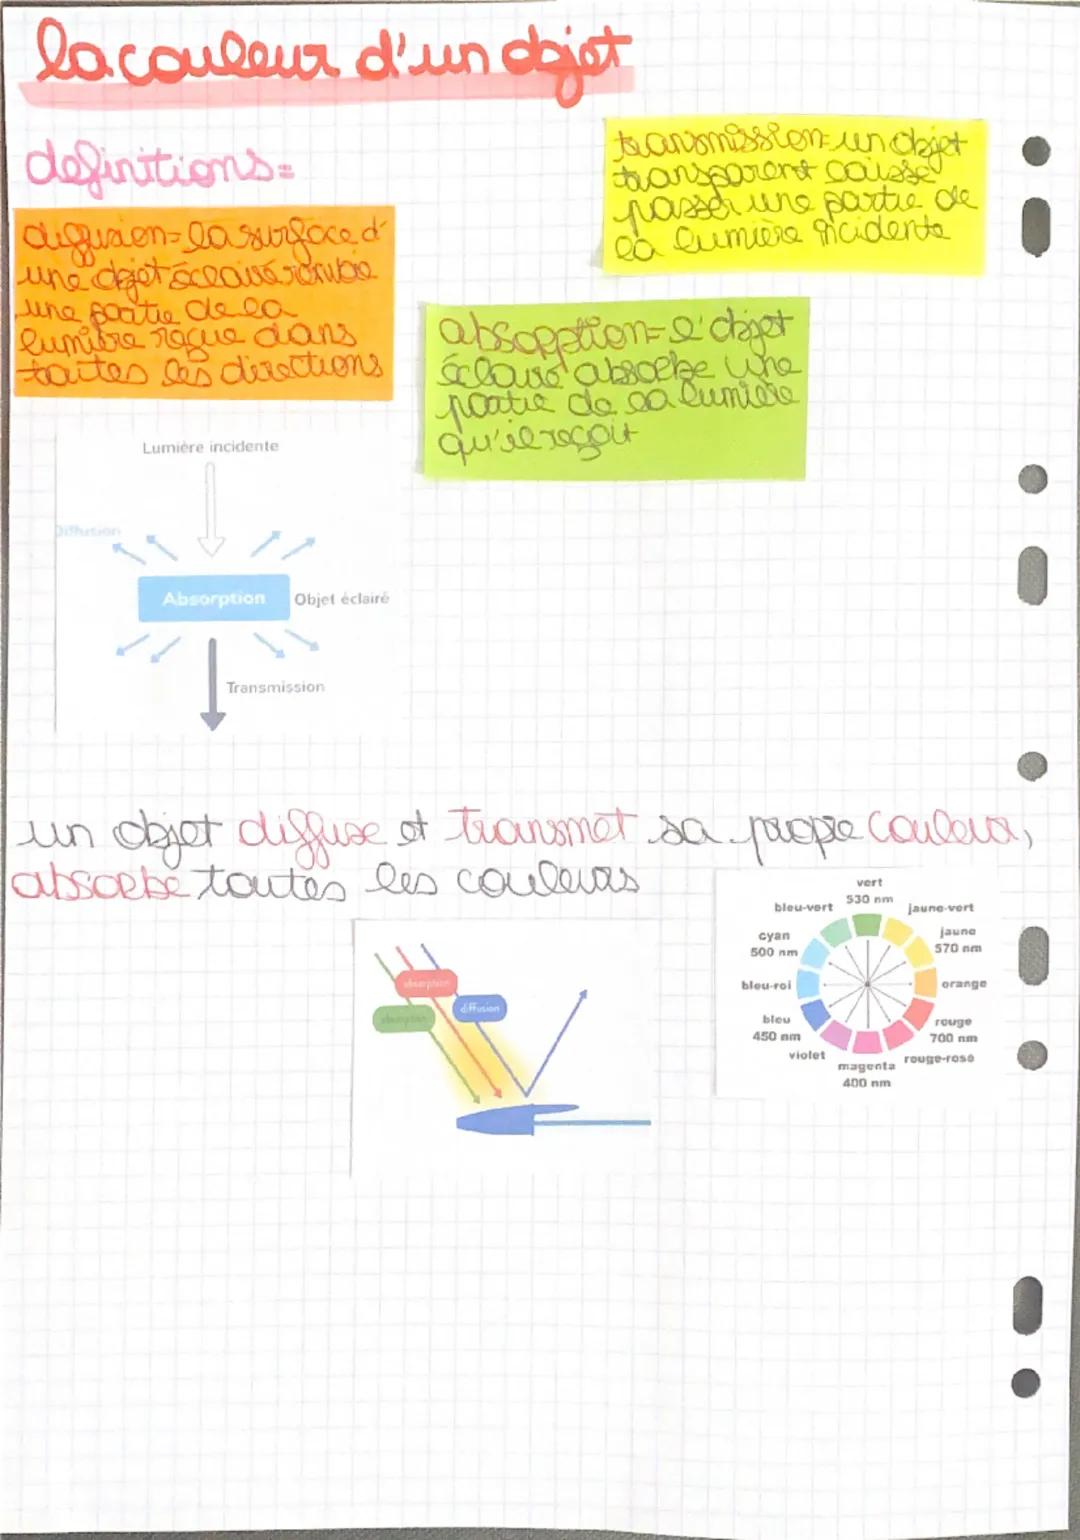 la couleur d'un objet
definitions=
transmission= un objet
transparent laisse
passer une partie de
la lumière incidente
diffusion= la surface d'
une objet éclairé
une partie de la
lumière reçue dans
toutes les directions
absorption= l'objet
éclairé absorbe une
partie de la lumière
qu'il reçoit
Lumière incidente
Diffusion
Absorption
Objet éclairé
Transmission
un objet diffuse et transmet sa propre couleur,
absorbe toutes les couleurs
absorption
diffusion
absorption
vert
530 nm
bleu-vert
jaune-vert
cyan
500 nm
jaune
570 nm
bleu-roi
orange
bleu
450 nm
rouge
700 nm
violet
rouge-rose
magenta
400 nm